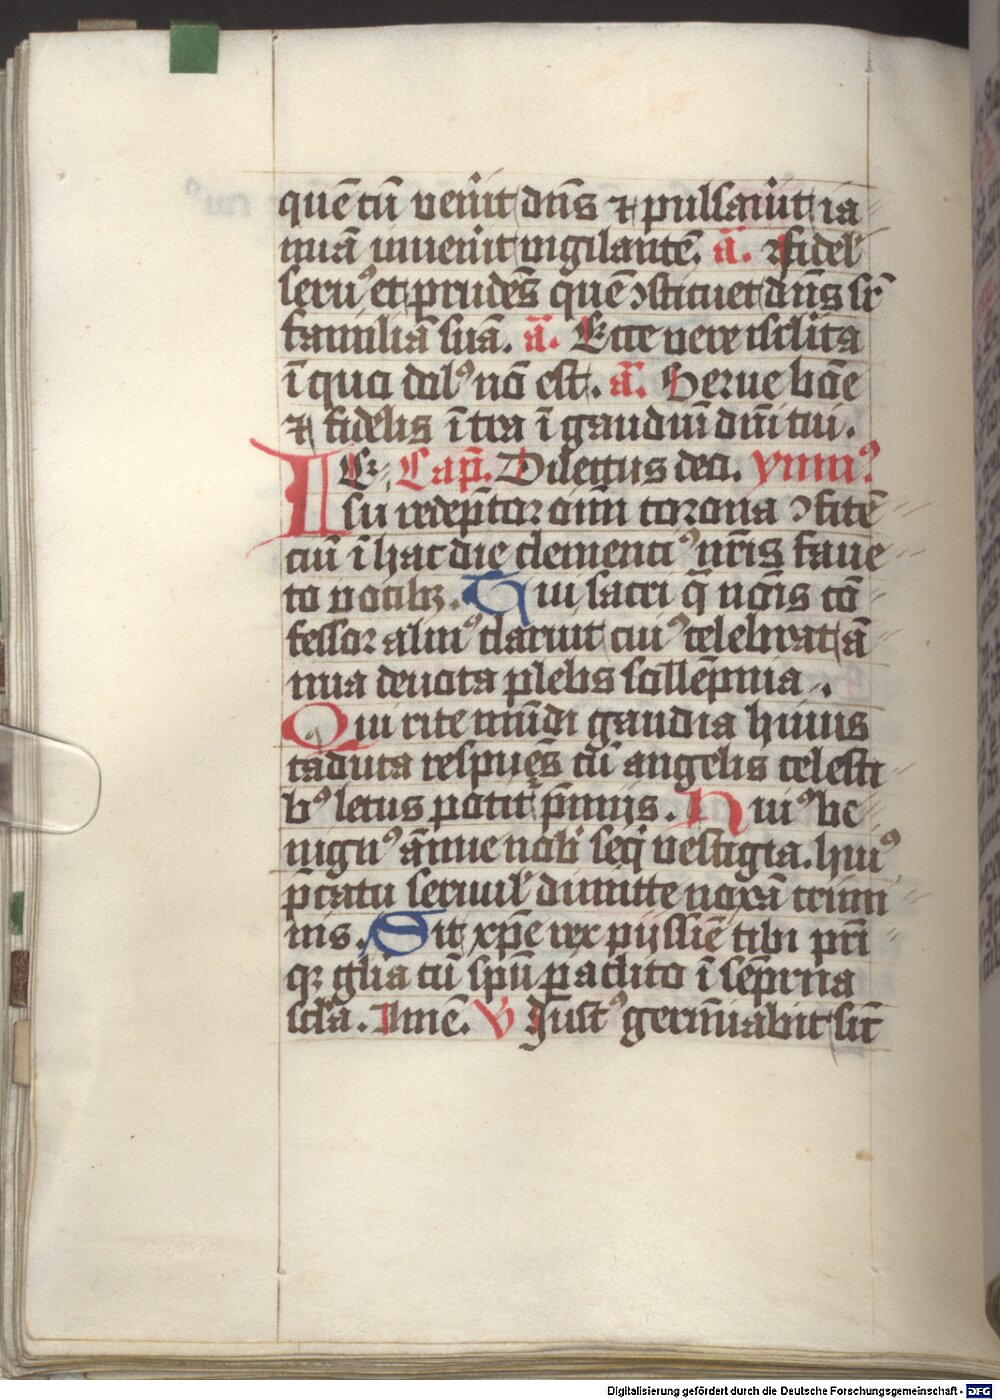 quē cū venīt dn̄s ⁊ pulsaūit ia
nuā inuenīt vigilantē. ā. ⁊ fidel᷒
seruꝰ et prudēs quē ↄstituet dn̄s sr̄
familiā suā. ā. Ecce vere isrlita
ī quo dolꝰ nō est. ā. Serue bōe
⁊ fidelis ītra ī gaudiū dn̄i tui.
Capl̄. Dilectus deo. ymnꝰ
Ihesu redēptor oīm corona ↄfitē
ciū ī hac die clemenciꝰ nr̄is faue
to vocibꝫ. Qui sacri q̄ noīs cō
fessor almꝰ claruit cuiꝰ celebrat ā
nua deuota plebis sollēpnia.
Qui rite mūdi gaudia huius
caduca respuēs cū angelis celesti
bꝰ letus potit̉ p̄mijs. Huiꝰ be
nignꝰ ānue nob᷒ seq̄ vestigia. huiꝰ
p̄catu seruul᷒ dimitte noxā crimi
nis. Sit xp̄e rex pijssīe tibi pr̄i
qꝫ gl̄ia cū spū paclito ī sēpt̄na
scl̄a. Amē. V̄ Justꝰ germīabit sic̄
Digitalisierung gefördert durch die Deutsche Forschungsgemeinschaft - DFG